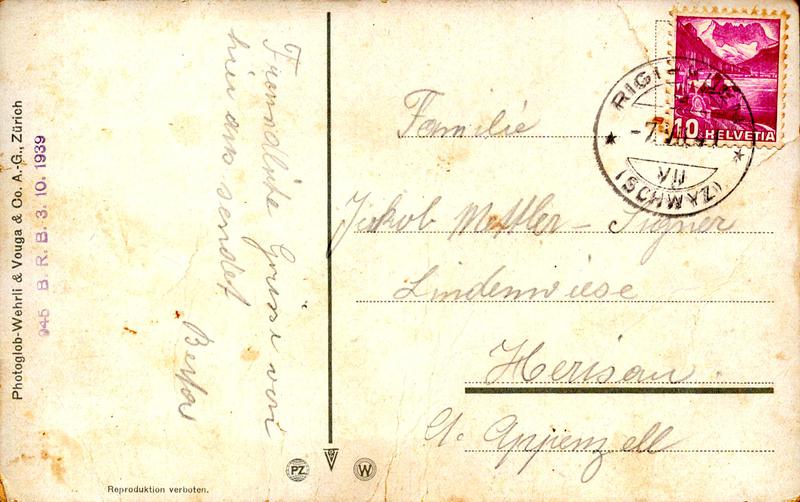 Photoglob-Wehrli & Vouga & Co. A.-G., Zürich
945 B. R. B. 3. 10. 1939
Freundliche Grüsse von
hier aus sendet
Familie
Jakob Mettler - Signer
Lindenwiese
Herisau.
Ct. Appenzell
RIGI
-7.
VIII
(SCHWYZ)
10 HELVETIA
PZ
W
Reproduktion verboten.